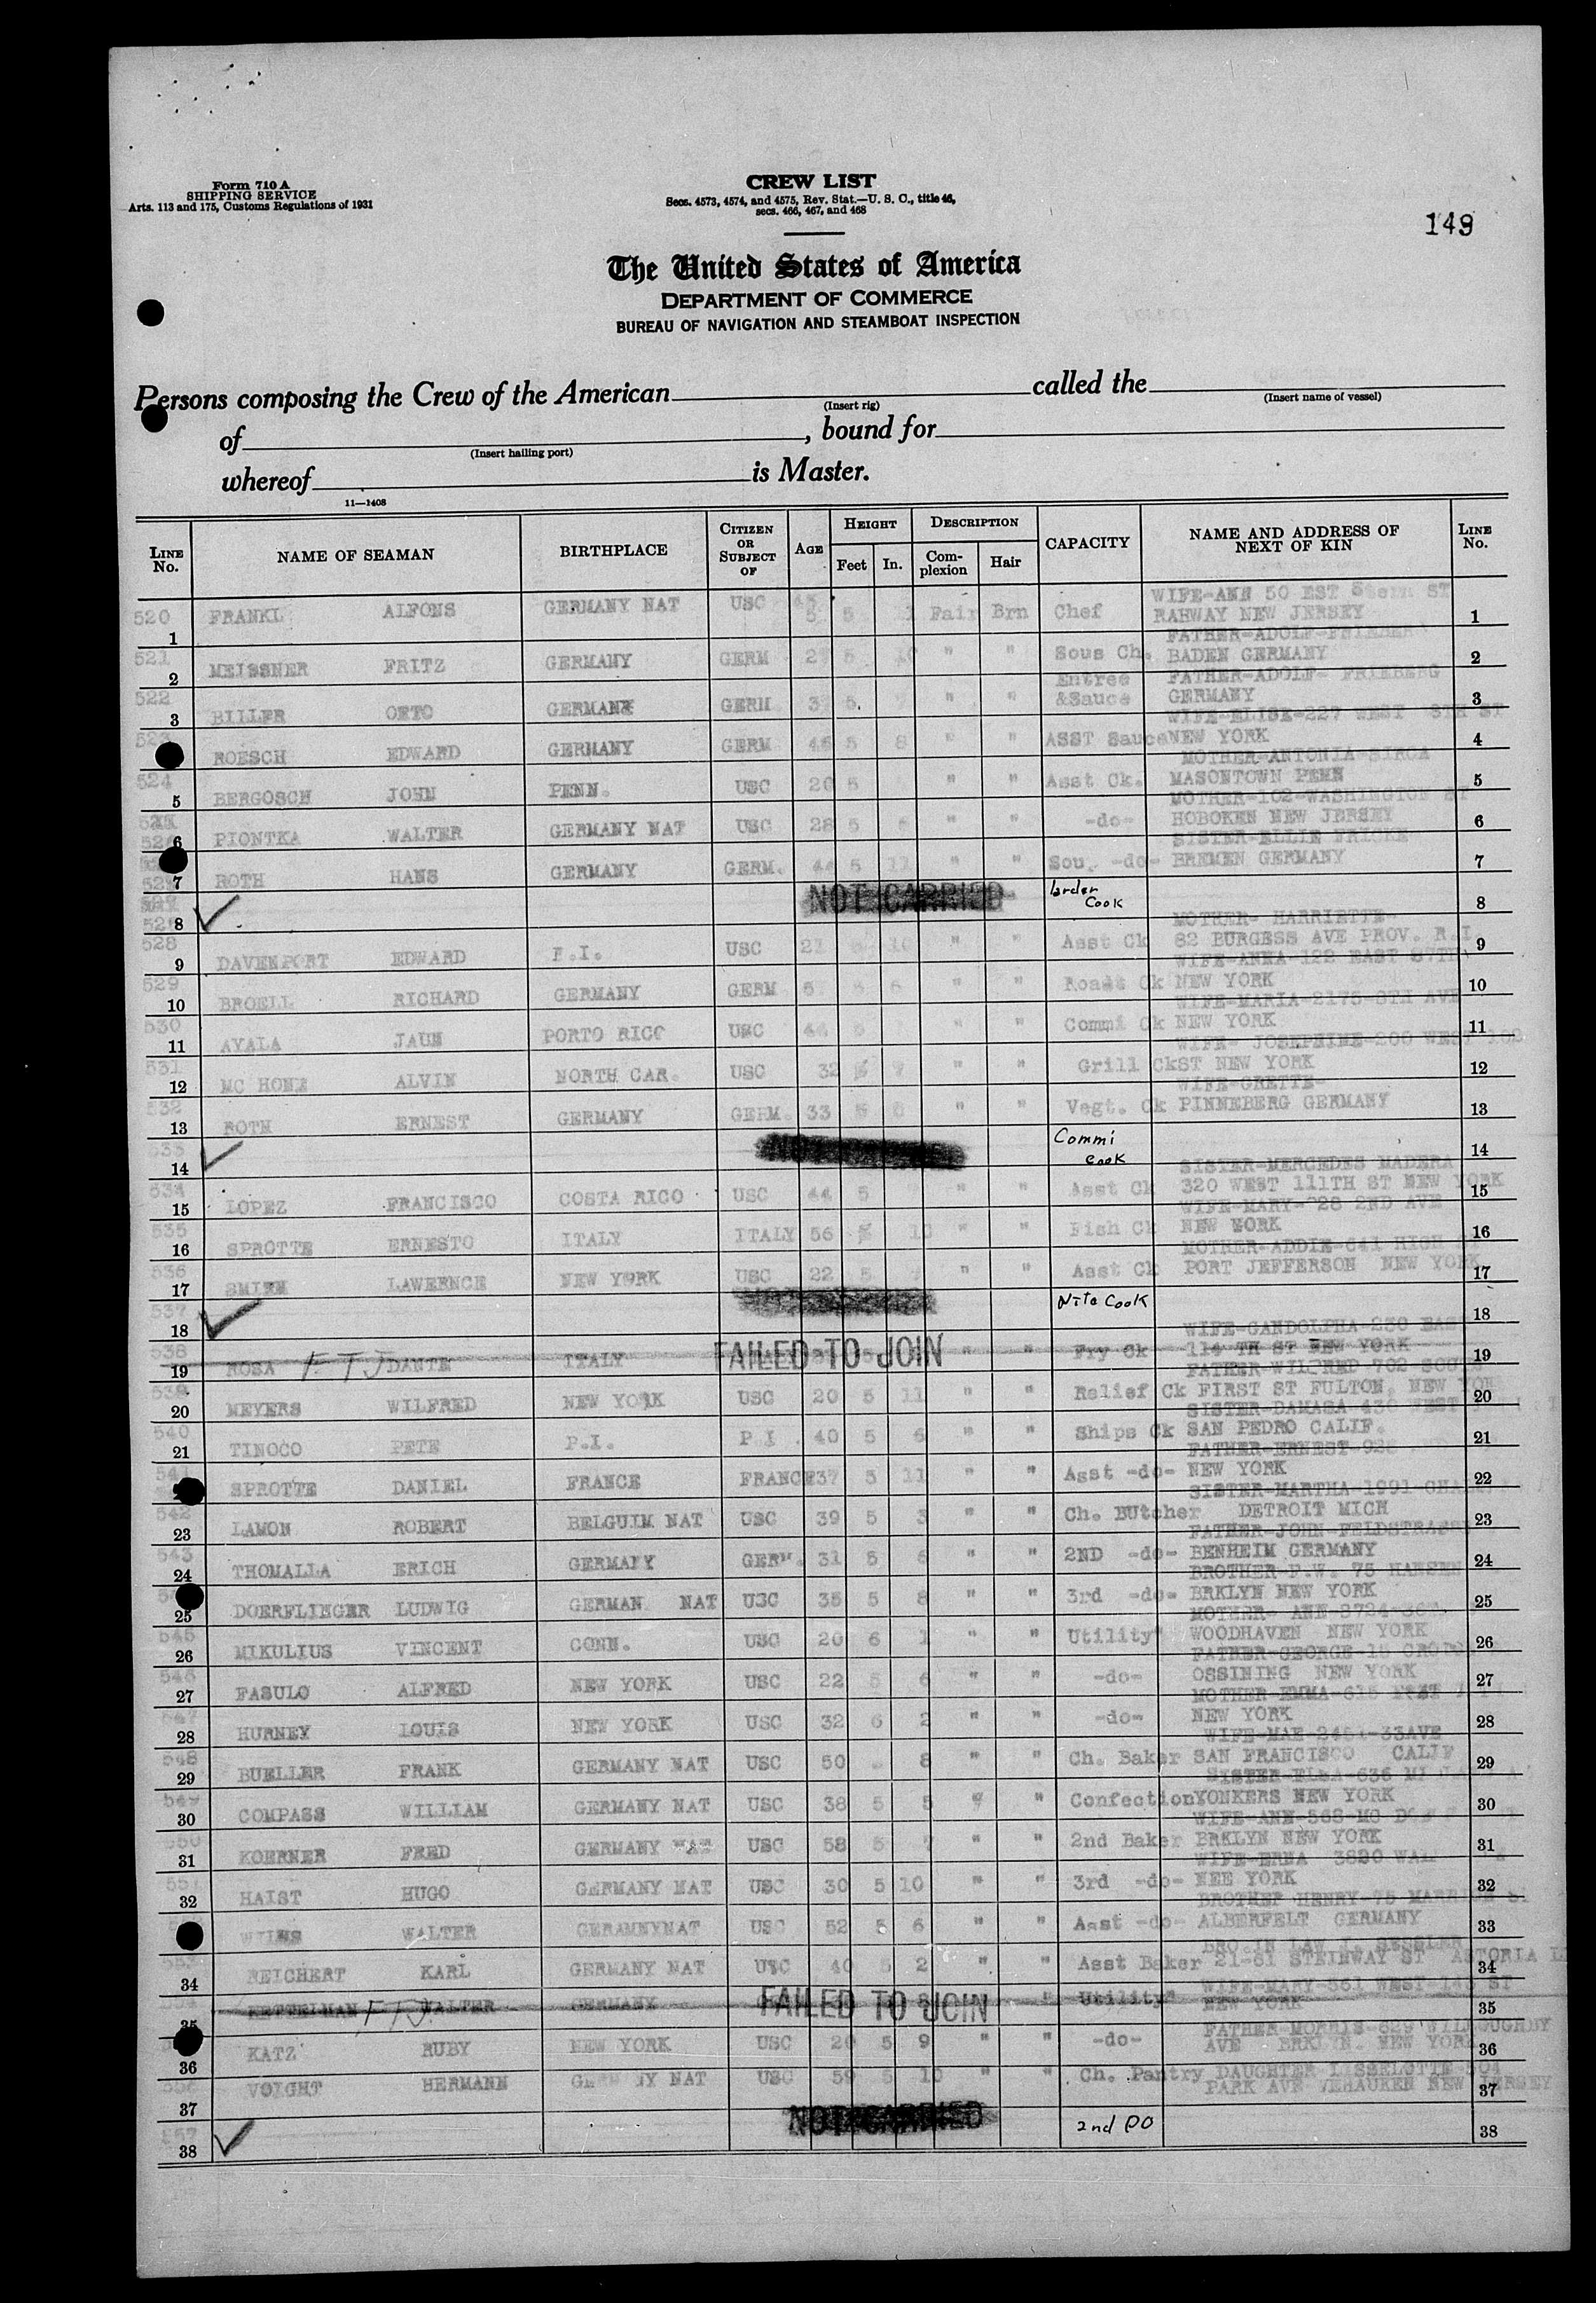 Form 710 A
SHIPPING SERVICE
Arts. 113 and 175, Customs Regulations of 1931
CREW LIST
Secs. 4573, 4574, and 4575, Rev. Stat.—U. S. C., title 46,
secs. 466, 467, and 468
149
The United States of America
DEPARTMENT OF COMMERCE
BUREAU OF NAVIGATION AND STEAMBOAT INSPECTION
Persons composing the Crew of the American called the
(Insert rig) (Insert name of vessel)
of , bound for
(Insert hailing port)
whereof is Master.
11—1408
LINE No. NAME OF SEAMAN BIRTHPLACE CITIZEN OR SUBJECT OF AGE HEIGHT Feet In. DESCRIPTION Complexion Hair CAPACITY NAME AND ADDRESS OF NEXT OF KIN LINE No.
WIFE-ANN 50 EST ST
520 1 FRANKL ALFONS GERMANY NAT USC 5 Fair Brn Chef RAHWAY NEW JERSEY 1
FATHER-ADOLF-
521 2 MEISSNER FRITZ GERMANY GERM 5 10 " " Sous Ch. BADEN GERMANY 2
Entree FATHER-ADOLF- FRIEBERG
522 3 BILLER OTTO GERMANY GERM 5 " " &Sauce GERMANY 3
WIFE-ELISE-227 WEST ST
ROESCH EDWARD GERMANY GERM 46 5 8 " " ASST Sauce NEW YORK 4
MOTHER-ANTONIA-
524 5 BERGOSCH JOHN PENN. USC 20 5 " " Asst Ck. MASONTOWN PENN 5
MOTHER-102-WASHINGTON ST
6 PIONTKA WALTER GERMANY NAT USC 28 5 6 " " -do- HOBOKEN NEW JERSEY 6
SISTER-ELLIE FRICKE
7 ROTH HANS GERMANY GERM. 44 5 11 " " Sou. -do- BREMEN GERMANY 7
8 NOT CARRIED larder Cook 8
MOTHER- HARRIETTE-
528 9 DAVENPORT EDWARD R.I. USC 21 10 " " Asst Ck 82 BURGESS AVE PROV. R.I. 9
WIFE-ANNA-122 EAST 87TH
529 10 BROELL RICHARD GERMANY GERM 5 6 " " Roast Ck NEW YORK 10
WIFE-MARIA-2175-8TH AVE
530 11 AYALA JAUN PORTO RICO USC 44 5 " " Commi Ck NEW YORK 11
WIFE- JOSEPHINE-200 WEST 108
531 12 MC HONE ALVIN NORTH CAR. USC 32 5 " " Grill Ck ST NEW YORK 12
WIFE-GRETTE-
532 13 ROTH ERNEST GERMANY GERM. 33 5 " " Vegt. Ck PINNEBERG GERMANY 13
14 Commi Cook 14
SISTER-MERCEDES MADERA
534 15 LOPEZ FRANCISCO COSTA RICO USC 44 5 " " Asst Ck 320 WEST 111TH ST NEW YORK 15
WIFE-MARY- 28 2ND AVE
535 16 SPROTTE ERNESTO ITALY ITALY 56 5 10 " " Fish Ck NEW YORK 16
MOTHER-ADDIE-641 HIGH ST
536 17 SMITH LAWERNCE NEW YORK USC 22 5 " " Asst Ck PORT JEFFERSON NEW YORK 17
537 18 Nite Cook 18
WIFE-GANDOLPHA-230 EAST
538 19 ROSA FTJ DANTE ITALY FAILED TO JOIN " " Fry Ck 114 TH ST NEW YORK 19
FATHER-WILFRED 702 SOUTH
20 MEYERS WILFRED NEW YORK USC 20 5 11 " " Relief Ck FIRST ST FULTON, NEW YORK 20
SISTER-DAMASA 430 WEST
540 21 TINOCO PETE P.I. P I . 40 5 6 " " Ships Ck SAN PEDRO CALIF. 21
FATHER-ERNEST
SPROTTE DANIEL FRANCE FRANCE 37 5 11 " " Asst -do- NEW YORK 22
SISTER-MARTHA-1991
542 23 LAMON ROBERT BELGUIM NAT USC 39 5 3 " " Ch. BUtcher DETROIT MICH 23
FATHER-JOHN-FELDSTRASSE
543 24 THOMALLA ERICH GERMANY GERM. 31 5 6 " " 2ND -do- BENHEIM GERMANY 24
BROTHER-F.W. 75 HANSEN
25 DOERFLINGER LUDWIG GERMAN NAT USC 35 5 8 " " 3rd -do- BRKLYN NEW YORK 25
MOTHER- ANN-8724-
26 MIKULIUS VINCENT CONN. USC 20 6 1 " " Utility" WOODHAVEN NEW YORK 26
FATHER-GEORGE-15
27 FASULO ALFRED NEW YORK USC 22 5 6 " " -do- OSSINING NEW YORK 27
MOTHER-EMMA-615
28 HURNEY LOUIS NEW YORK USC 32 6 2 " " -do- NEW YORK 28
WIFE-MAE-2451-33AVE
548 29 BUELLER FRANK GERMANY NAT USC 50 8 " " Ch. Baker SAN FRANCISCO CALIF 29
SISTER-ELSA-636
549 30 COMPASS WILLIAM GERMANY NAT USC 38 5 5 " " Confection YONKERS NEW YORK 30
WIFE-ANN-568-MC
550 31 KOERNER FRED GERMANY NAT USC 58 5 7 " " 2nd Baker BRKLYN NEW YORK 31
WIFE-ERNA 3820
551 32 HAIST HUGO GERMANY NAT USC 30 5 10 " " 3rd -do- NEE YORK 32
BROTHER HENRY-75
WALTER GERAMNYNAT USC 52 5 6 " " Asst -do- ALBERFELT GERMANY 33
BRO.IN LAW SESSLER
553 34 REICHERT KARL GERMANY NAT USC 40 5 2 " " Asst Baker 21-81 STEINWAY ST ASTORIA L 34
WIFE-MARY-561 WEST 143 ST
35 KETTELMAN FTJ WALTER GERMANY FAILED TO JOIN " Utility" NEW YORK 35
FATHER-MORRIS-629 WILLOUGHBY
36 KATZ RUBY NEW YORK USC 20 5 9 " " -do- AVE BRKLYN. NEW YORK 36
DAUGHTER LISSELOTTE 504
37 VOIGHT HERMANN GERM NY NAT USC 59 5 10 " " Ch. Pantry PARK AVE WEHAUKEN NEW JERSEY 37
38 NOT CARRIED 2nd DO 38